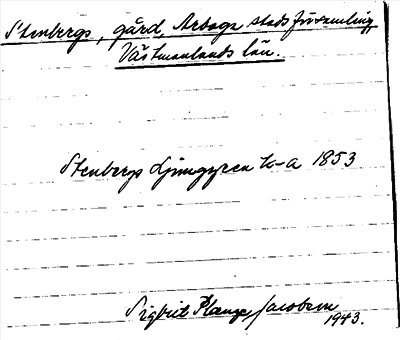 Stenbergs, gård, Arboga stadsförsamling,
Västmanlands län.
Stenbergs Ljunggren k-a 1853
Sigbrit Plange Jacobson
1943.